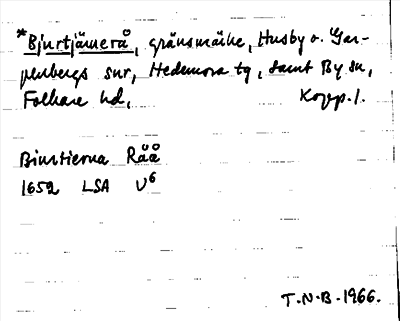 *Bjurtjämerå, gränsmärke, Husby o. Gar-
penbergs snr, Hedemora tg, samt By sn,
Folkare hd, Kopp.l.
Biurtierna Råå
1652 LSA U6
T.N.B. 1966.